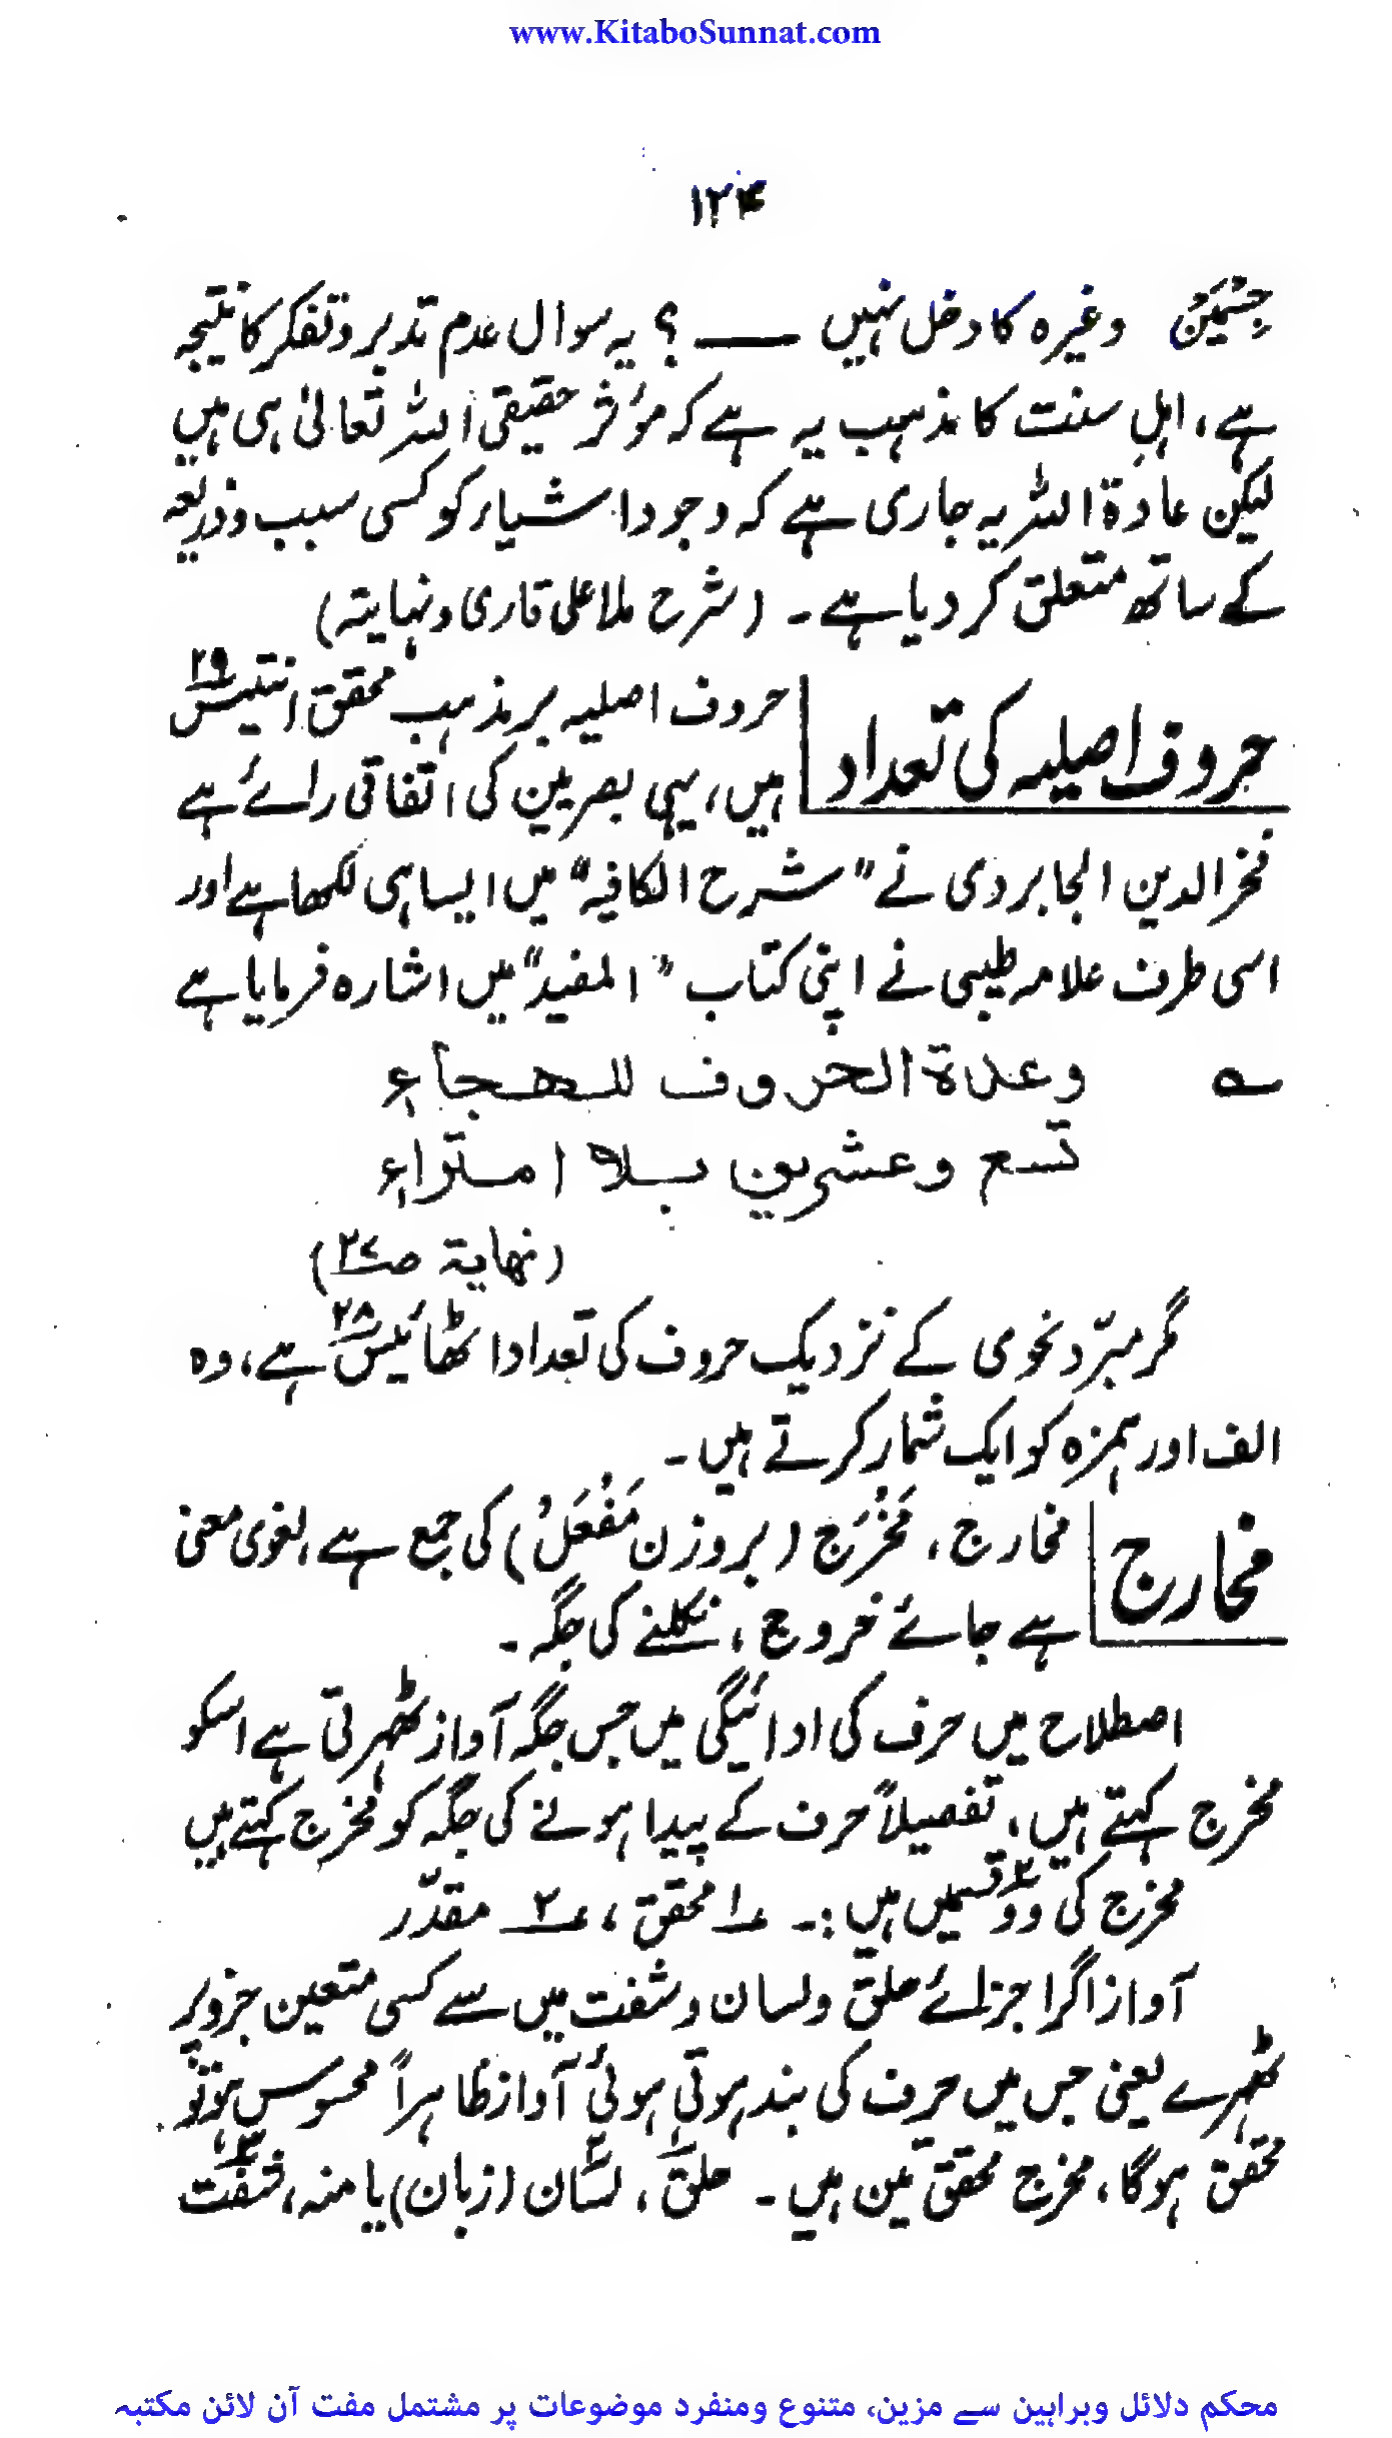 www.KitaboSunnat.com
۱۲۴
جسمین وغیرہ کا دخل نہیں ــــ ؟ یہ سوال عدم تدبر وتفکر کا نتیجہ
ہے، اہلِ سنت کا مذہب یہ ہے کہ مؤثر حقیقی اللہ تعالیٰ ہی ہیں
لیکن عادۃ اللہ یہ جاری ہے کہ وجود اشیاء کو کسی سبب وذریعہ
کے ساتھ متعلق کر دیا ہے۔ (شرح ملا علی قاری ونہایتہ)
حروف اصلیہ کی تعداد
حروف اصلیہ بر مذہب محقق انتیس ۲۹
ہیں، یہی بصریین کی اتفاقی رائے ہے
فخر الدین الجابردی نے "شرح الکافیہ" میں ایسا ہی لکھا ہے اور
اسی طرف علامہ طیبی نے اپنی کتاب "المفید" میں اشارہ فرمایا ہے
؎ وعدة الحروف للهجاء
تسع وعشرين بلا امتراء
(نہایۃ ص۲۷)
مگر مبرّد نحوی کے نزدیک حروف کی تعداد اٹھائیس ۲۸ ہے، وہ
الف اور ہمزہ کو ایک شمار کرتے ہیں۔
مخارج
مخارج، مَخْرَج (بروزن مَفْعَلُ) کی جمع ہے، لغوی معنی
ہے جائے خروج، نکلنے کی جگہ۔
اصطلاح میں حرف کی ادائیگی میں جس جگہ آواز ٹھہرتی ہے اسکو
مخرج کہتے ہیں، تفصیلاً حرف کے پیدا ہونے کی جگہ کو مخرج کہتے ہیں
مخرج کی دو ۲ قسمیں ہیں :۔ ۱؎ محقق ، ۲؎ مقدّر
آواز اگر اجزائے حلق ولسان وشفت میں سے کسی متعین جزو پر
ٹھہرے یعنی جس میں حرف کی بند ہوتی ہوئی آواز ظاہراً محسوس ہو تو
محقق ہوگا، مخرج محقق تین ہیں۔ حلق۱، لسان۲ (زبان) یا منہ، شفت۳
محکم دلائل وبراہین سے مزین، متنوع ومنفرد موضوعات پر مشتمل مفت آن لائن مکتبہ